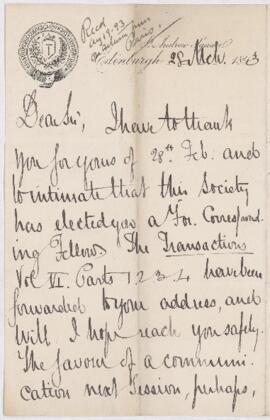 Recd
Aug 19. 93
Paris.
St Andrew Square
Edinburgh 28 Mch. 1893
Dear Sir, I have to thank
you for yours of 28th Feb. and
to intimate that this Society
has elected you a For. Correspond-
ing Fellow. The Transactions
Vol VI. Parts 1, 2 3 4 have been
forwarded to your address, and
will I hope reach you safely.
The favour of a communi-
cation next Session, perhaps,